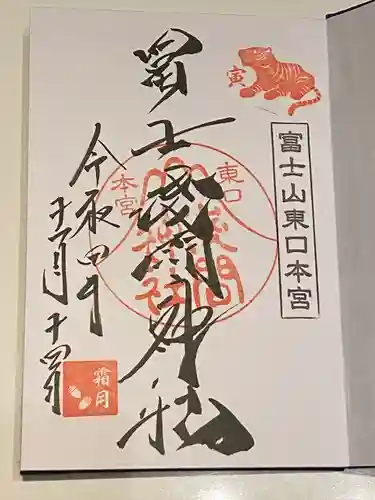 寅
富士山東口本宮
冨士浅間神社
東口
本宮
令和四年
十一月十四日
霜月